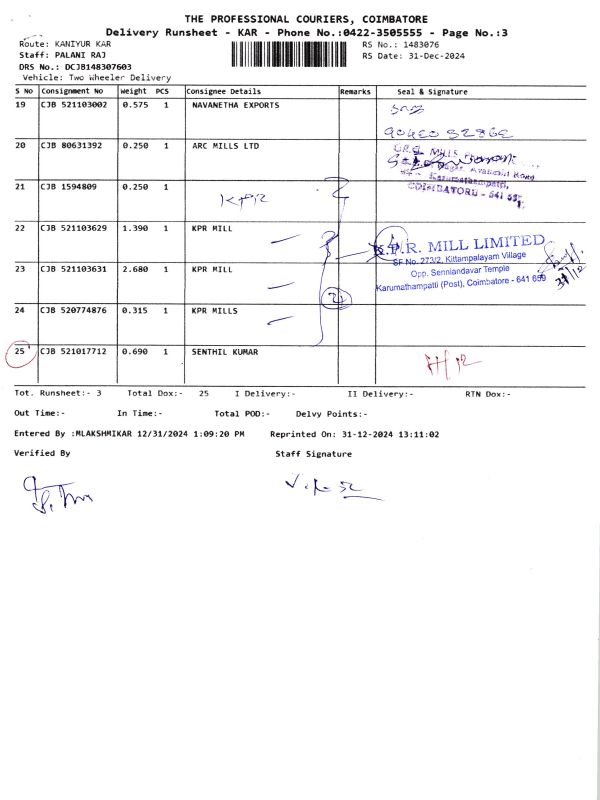 THE PROFESSIONAL COURIERS, COIMBATORE
Delivery Runsheet - KAR - Phone No.:0422-3505555 - Page No.:3
Route: KANIYUR KAR RS No.: 1483076
Staff: PALANI RAJ RS Date: 31-Dec-2024
DRS No.: DCJB148307603
Vehicle: Two Wheeler Delivery
S No Consignment No Weight PCS Consignee Details Remarks Seal & Signature
19 CJB 521103002 0.575 1 NAVANETHA EXPORTS
20 CJB 80631392 0.250 1 ARC MILLS LTD
21 CJB 1594809 0.250 1 KPR
Karumathampatti,
COIMBATORE - 641
22 CJB 521103629 1.390 1 KPR MILL
K.P.R. MILL LIMITED
SF No. 273/2, Kittampalayam Village
23 CJB 521103631 2.680 1 KPR MILL
Opp. Senniandavar Temple
Karumathampatti (Post), Coimbatore - 641 659
24 CJB 520774876 0.315 1 KPR MILLS
25 CJB 521017712 0.690 1 SENTHIL KUMAR
Tot. Runsheet:- 3 Total Dox:- 25 I Delivery:- II Delivery:- RTN Dox:-
Out Time:- In Time:- Total POD:- Delvy Points:-
Entered By :MLAKSHMIKAR 12/31/2024 1:09:20 PM Reprinted On: 31-12-2024 13:11:02
Verified By Staff Signature